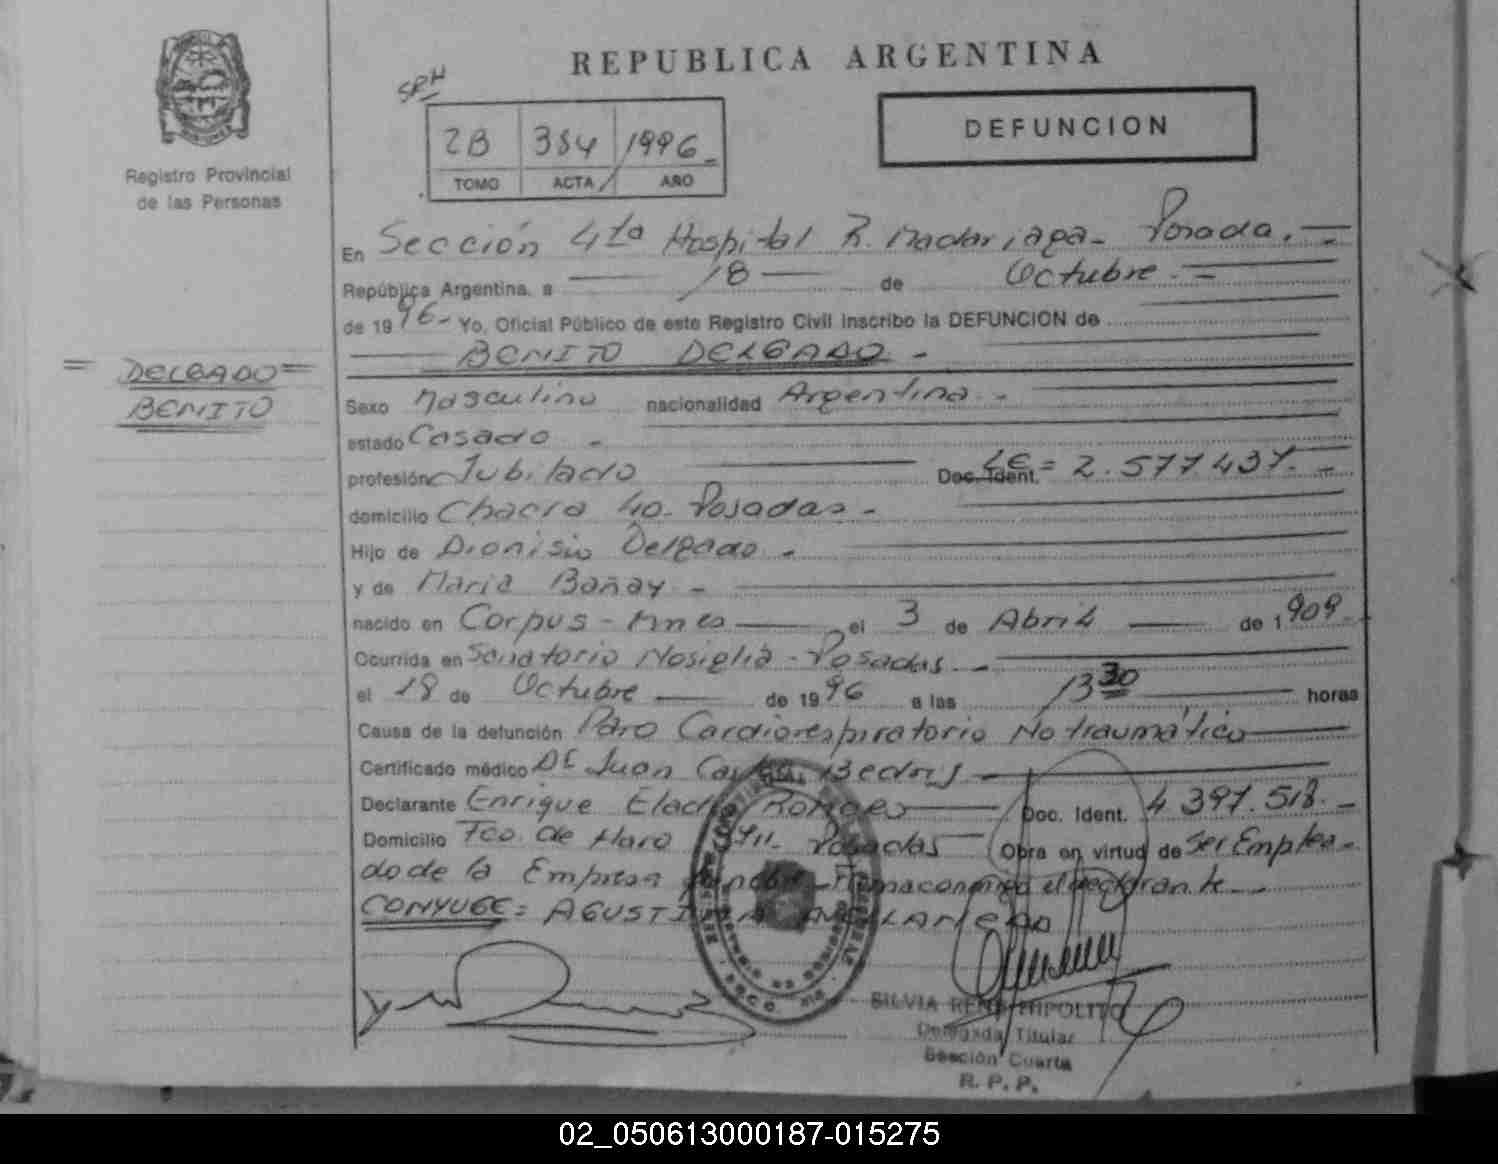 REPUBLICA ARGENTINA
SRH
2B 384 1996
TOMO ACTA AÑO
DEFUNCION
Registro Provincial
de las Personas
En Sección 4ta Hospital R. Madariaga - Posadas. —
República Argentina, a — 18 — de Octubre. —
de 1996 - Yo, Oficial Público de este Registro Civil inscribo la DEFUNCION de
BENITO DELGADO -
= DELGADO =
BENITO
Sexo Masculino nacionalidad Argentina. -
estado Casado -
profesión Jubilado — Doc. Ident. LE = 2.577.437. -
domicilio Chacra 40. Posadas. -
Hijo de Dionisio Delgado. -
y de Maria Bañay -
nacido en Corpus - Mnes — el 3 de Abril — de 1909.
Ocurrida en Sanatorio Nosiglia - Posadas. -
el 18 de Octubre — de 1996 a las 13 30 horas
Causa de la defunción Paro Cardiorespiratorio No traumático
Certificado médico Dr Juan Carlos
Declarante Enrique — Doc. Ident. 4.397.518. -
Domicilio Fco. de Haro Posadas — Obra en virtud de Ser Emplea-
do de la Empresa Firma conmigo el declarante. -
CONYUGE = AGUSTINA
SILVIA RENE HIPOLITO
Delegada Titular
Sección Cuarta
R. P. P.
02_050613000187-015275